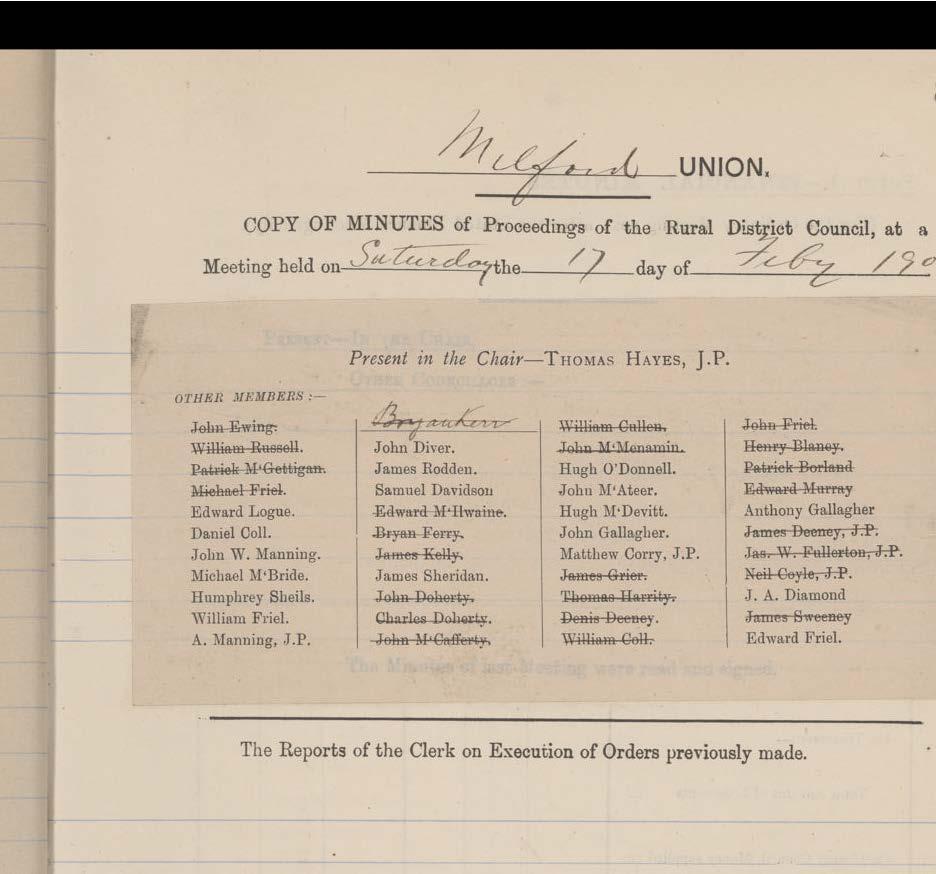 Milford UNION.
COPY OF MINUTES of Proceedings of the Rural District Council, at a
Meeting held on Saturday the 17 day of Feby 190
Present in the Chair—THOMAS HAYES, J.P.
OTHER MEMBERS :—
John Ewing.
William Russell.
Patrick M‘Gettigan.
Michael Friel.
Edward Logue.
Daniel Coll.
John W. Manning.
Michael M‘Bride.
Humphrey Sheils.
William Friel.
A. Manning, J.P.
Bryan Kerr
John Diver.
James Rodden.
Samuel Davidson
Edward M‘Ilwaine.
Bryan Ferry.
James Kelly.
James Sheridan.
John Doherty.
Charles Doherty.
John M‘Cafferty.
William Cullen.
John M‘Menamin.
Hugh O’Donnell.
John M‘Ateer.
Hugh M‘Devitt.
John Gallagher.
Matthew Corry, J.P.
James Grier.
Thomas Harrity.
Denis Deeney.
William Coll.
John Friel.
Henry Blaney.
Patrick Borland
Edward Murray
Anthony Gallagher
James Deeney, J.P.
Jas. W. Fullerton, J.P.
Neil Coyle, J.P.
J. A. Diamond
James Sweeney
Edward Friel.
The Minutes of last Meeting were read and signed.
The Reports of the Clerk on Execution of Orders previously made.